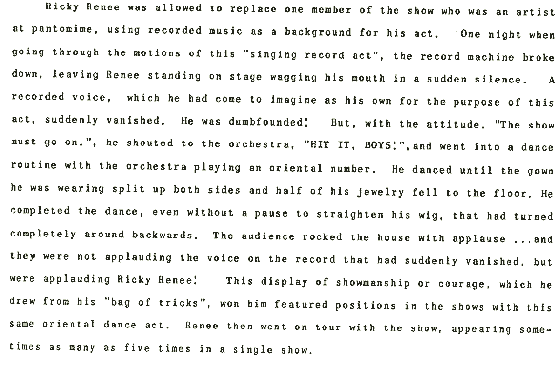 Ricky Renee was allowed to replace one member of the show who was an artist
at pantomime, using recorded music as a background for his act. One night when
going through the motions of this "singing record act", the record machine broke
down, leaving Renee standing on stage wagging his mouth in a sudden silence. A
recorded voice, which he had come to imagine as his own for the purpose of this
act, suddenly vanished. He was dumbfounded! But, with the attitude, "The show
must go on.", he shouted to the orchestra, "HIT IT, BOYS!",and went into a dance
routine with the orchestra playing an oriental number. He danced until the gown
he was wearing split up both sides and half of his jewelry fell to the floor. He
completed the dance, even without a pause to straighten his wig, that had turned
completely around backwards. The audience rocked the house with applause ...and
they were not applauding the voice on the record that had suddenly vanished, but
were applauding Ricky Renee! This display of showmanship or courage, which he
drew from his "bag of tricks", won him featured positions in the shows with this
same oriental dance act. Renee then went on tour with the show, appearing some-
times as many as five times in a single show.